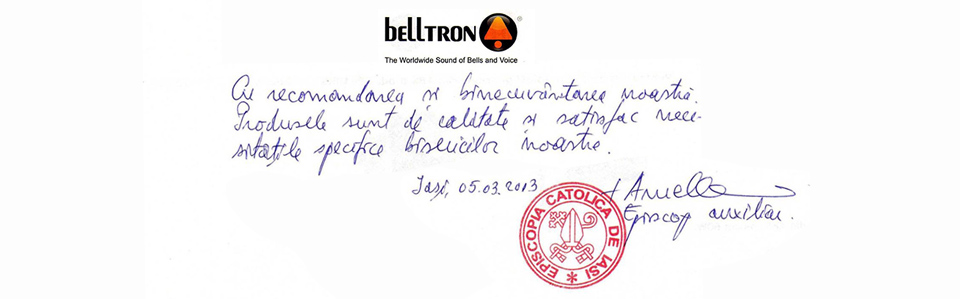 bellTRON®
The Worldwide Sound of Bells and Voice
Cu recomandarea și binecuvântarea noastră.
Produsele sunt de calitate și satisfac nece-
sitățile specifice bisericilor noastre.
Iași, 05.03.2013
Episcop auxiliar.
EPISCOPIA CATOLICA DE IASI *